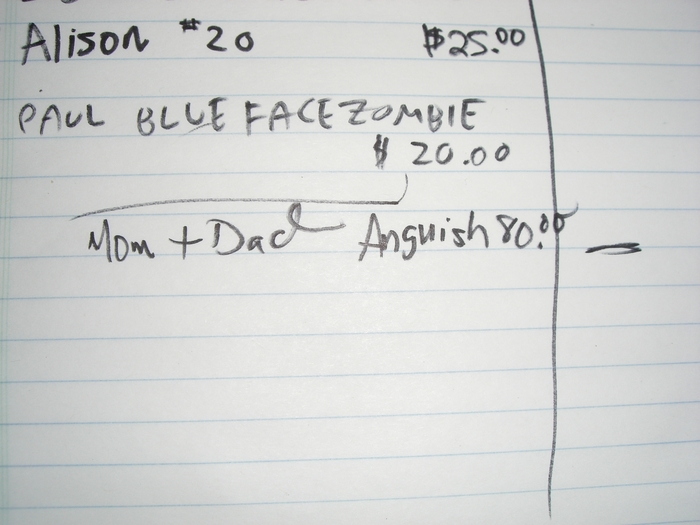 Alison #20 $25.00
PAUL BLUE FACE ZOMBIE
$ 20.00
Mom + Dad Anguish 80.00